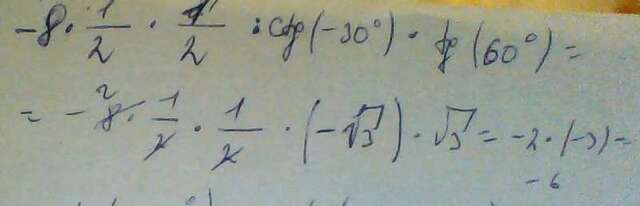 -8 · 1/2 · 1/2 · ctg(-30°) · tg(60°) =
= -8² · 1/2 · 1/2 · (-√3) · √3 = -2 · (-3) =
-6